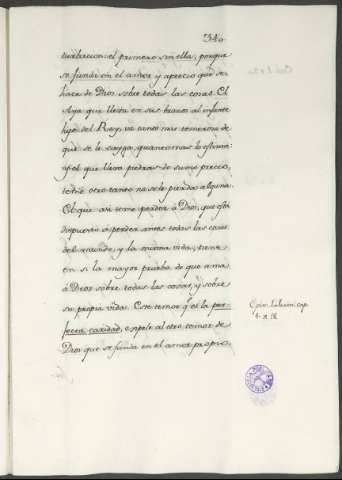 340
tualacion: el primero sin ella, porque
se funda en el amor y aprecio que se
hace de Dios sobre todas las cosas. El
Aya que lleva en sus brazos al infante
hijo del Rey, va tanto mas temerosa de
que se le cayga, quanto mas lo estima
y el que lleva piedras de sumo precio,
teme otro tanto no se le pierda alguna.
El que asi teme perder á Dios, que está
dispuesto á perder antes todas las cosas
del mundo, y la misma vida, tiene
en si la mayor prueba de que ama
á Dios sobre todas las cosas, y sobre
su propia vida. Este temor, q.e es la per-
fecta caridad, expele al otro temor de
Dios que se funda en el amor propio,